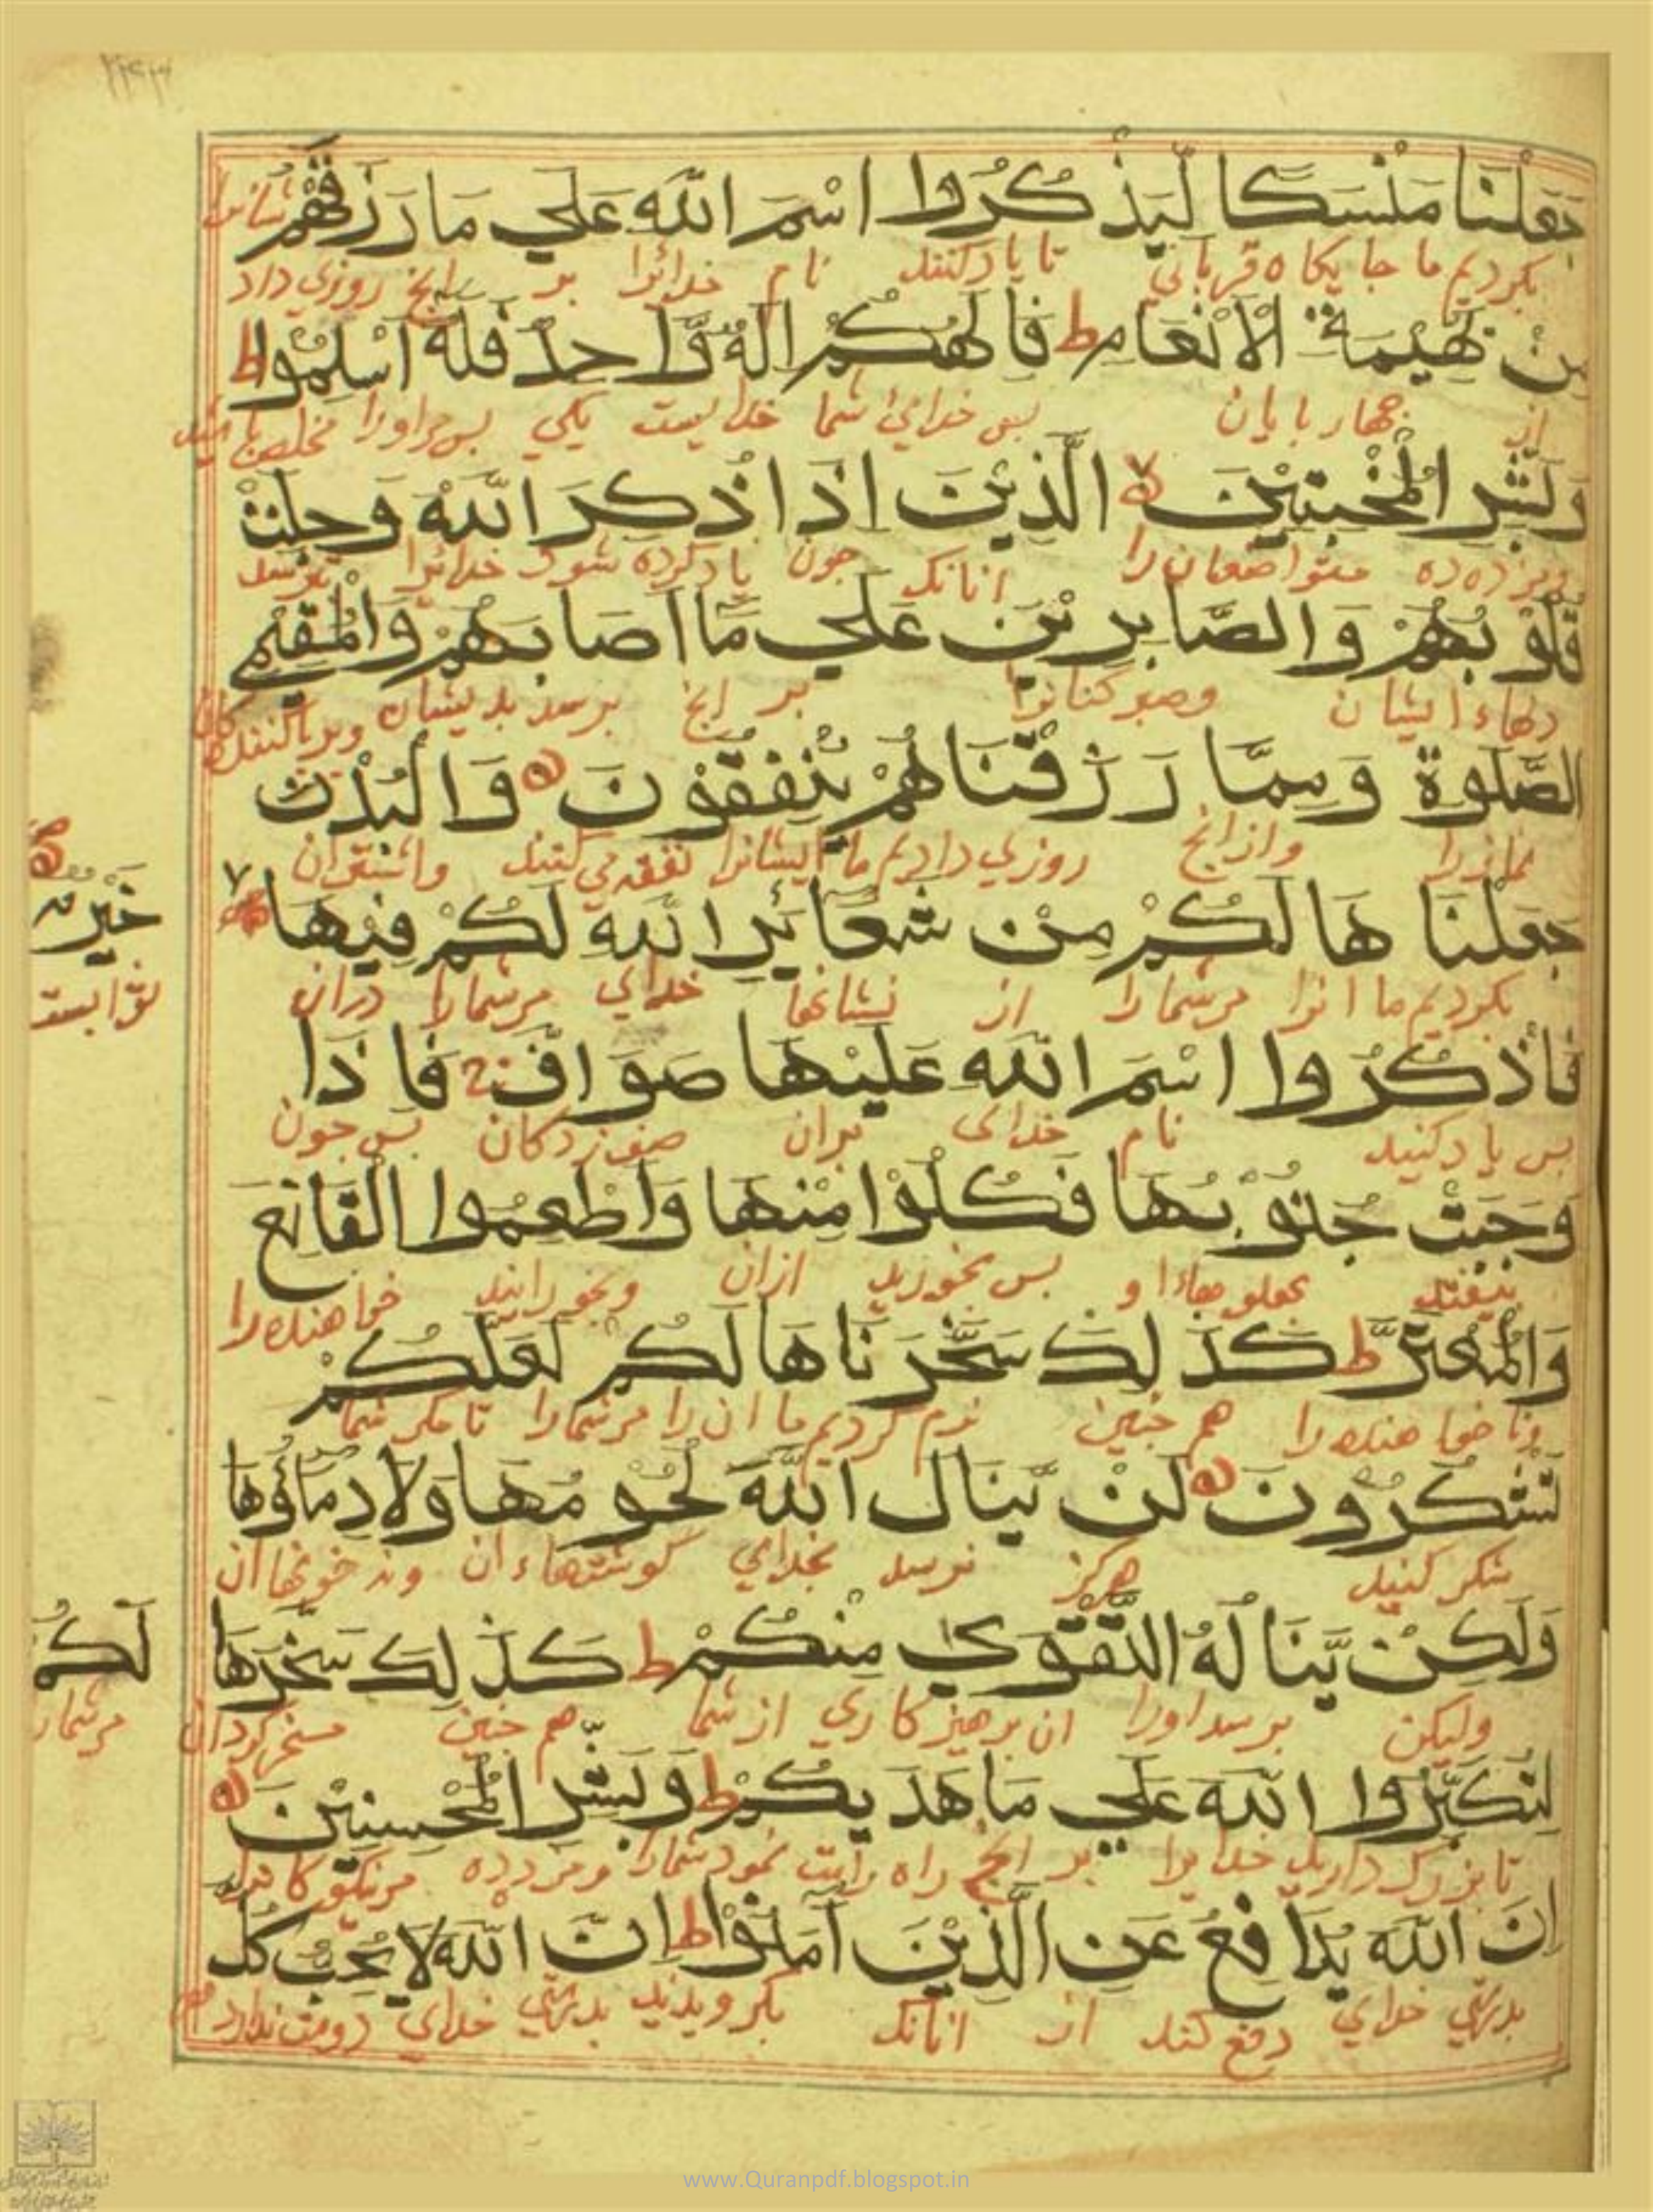 جَعَلْنَا مَنْسَكًا لِّيَذْكُرُوا اسْمَ اللّٰهِ عَلٰي مَا رَزَقَهُمْ
بكرديم ما جايكاه قرباني تا ياد كنند نام خدائرا بر انج روزي داد
مِنْ بَهِيْمَةِ الْاَنْعَامِ ط فَاِلٰهُكُمْ اِلٰهٌ وَّاحِدٌ فَلَهٗ اَسْلِمُوْا ط
از جهار بايان بس خداي شما خدايست يكي بس مراورا مخلص باشيد
وَبَشِّرِ الْمُخْبِتِيْنَ لا الَّذِيْنَ اِذَا ذُكِرَ اللّٰهُ وَجِلَتْ
ومزده ده متواضعان را انانك جون ياد كرده شود خدائرا بترسد
قُلُوْبُهُمْ وَالصَّابِرِيْنَ عَلٰي مَا اَصَابَهُمْ وَالْمُقِيْمِي
دلهاء ايشان وصبر كنانرا بر انج برسد بديشان
الصَّلٰوةِ وَمِمَّا رَزَقْنَاهُمْ يُنْفِقُوْنَ وَالْبُدْنَ
نمازرا وازانج روزي داديم ما ايشانرا نفقه مي كنند واشتران
جَعَلْنَاهَا لَكُمْ مِنْ شَعَائِرِ اللّٰهِ لَكُمْ فِيْهَا ٧
خَيْرٌ
بكرديم ما انرا مرشمارا از نشانها خداي مرشمارا دران
ثوابست
فَاذْكُرُوا اسْمَ اللّٰهِ عَلَيْهَا صَوَافَّ ج فَاِذَا
بس ياد كنيد نام خداي بران صف زدكان بس جون
وَجَبَتْ جُنُوْبُهَا فَكُلُوْا مِنْهَا وَاَطْعِمُوا الْقَانِعَ
بيفتد بهلوهاء او بس بخوريد ازان وبخورانيد خواهنده را
وَالْمُعْتَرَّ ط كَذٰلِكَ سَخَّرْنَاهَا لَكُمْ لَعَلَّكُمْ
وناخواهنده را هم جنين نرم كرديم ما ان را مرشمارا تا مكر شما
تَشْكُرُوْنَ لَنْ يَّنَالَ اللّٰهَ لُحُوْمُهَا وَلَا دِمَاؤُهَا
شكر كنيد هركز نرسد بخداي كوشتهاء ان ونه خونها ان
وَلٰكِنْ يَّنَالُهُ التَّقْوٰي مِنْكُمْ ط كَذٰلِكَ سَخَّرَهَا
لَكُمْ
وليكن برسد اورا ان برهيزكاري از شما هم جنين مسخر كردان
مرشمارا
لِتُكَبِّرُوا اللّٰهَ عَلٰي مَا هَدٰيكُمْ ط وَبَشِّرِ الْمُحْسِنِيْنَ
تا بزرك داريد خدايرا بر انج راه راست نمود شمارا ومزده ده مرنيكوكارانرا
اِنَّ اللّٰهَ يُدَافِعُ عَنِ الَّذِيْنَ اٰمَنُوْا ط اِنَّ اللّٰهَ لَا يُحِبُّ كُلَّ
بدرستي خداي دفع كند از انانك بكرويديد بدرستي خداي دوست ندارد
www.Quranpdf.blogspot.in